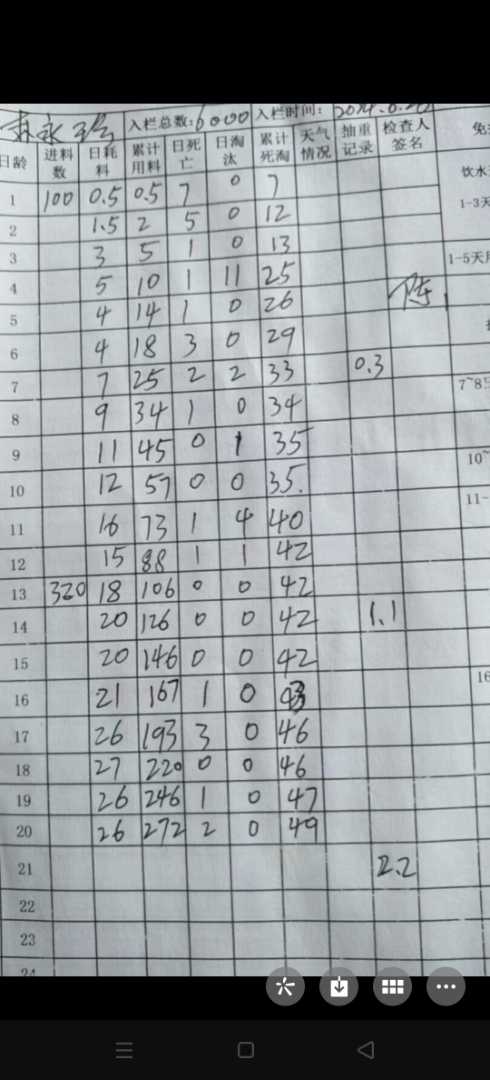 入栏总数: 6000 入栏时间:
日龄 进料数 日耗料 累计用料 日死亡 日淘汰 累计死淘 天气情况 抽重记录 检查人签名
饮水
1 100 0.5 0.5 7 0 7
1-3天
2 1.5 2 5 0 12
3 3 5 1 0 13
1-5天
4 5 10 1 11 25
5 4 14 1 0 26 陈
6 4 18 3 0 29
7 7 25 2 2 33 0.3
7~8
8 9 34 1 0 34
9 11 45 0 1 35
10~
10 12 57 0 0 35.
11-
11 16 73 1 4 40
12 15 88 1 1 42
13 320 18 106 0 0 42
14 20 126 0 0 42 1.1
15 20 146 0 0 42
16
16 21 167 1 0 43
17 26 193 3 0 46
18 27 220 0 0 46
19 26 246 1 0 47
20 26 272 2 0 49
21 2.2
22
23
24